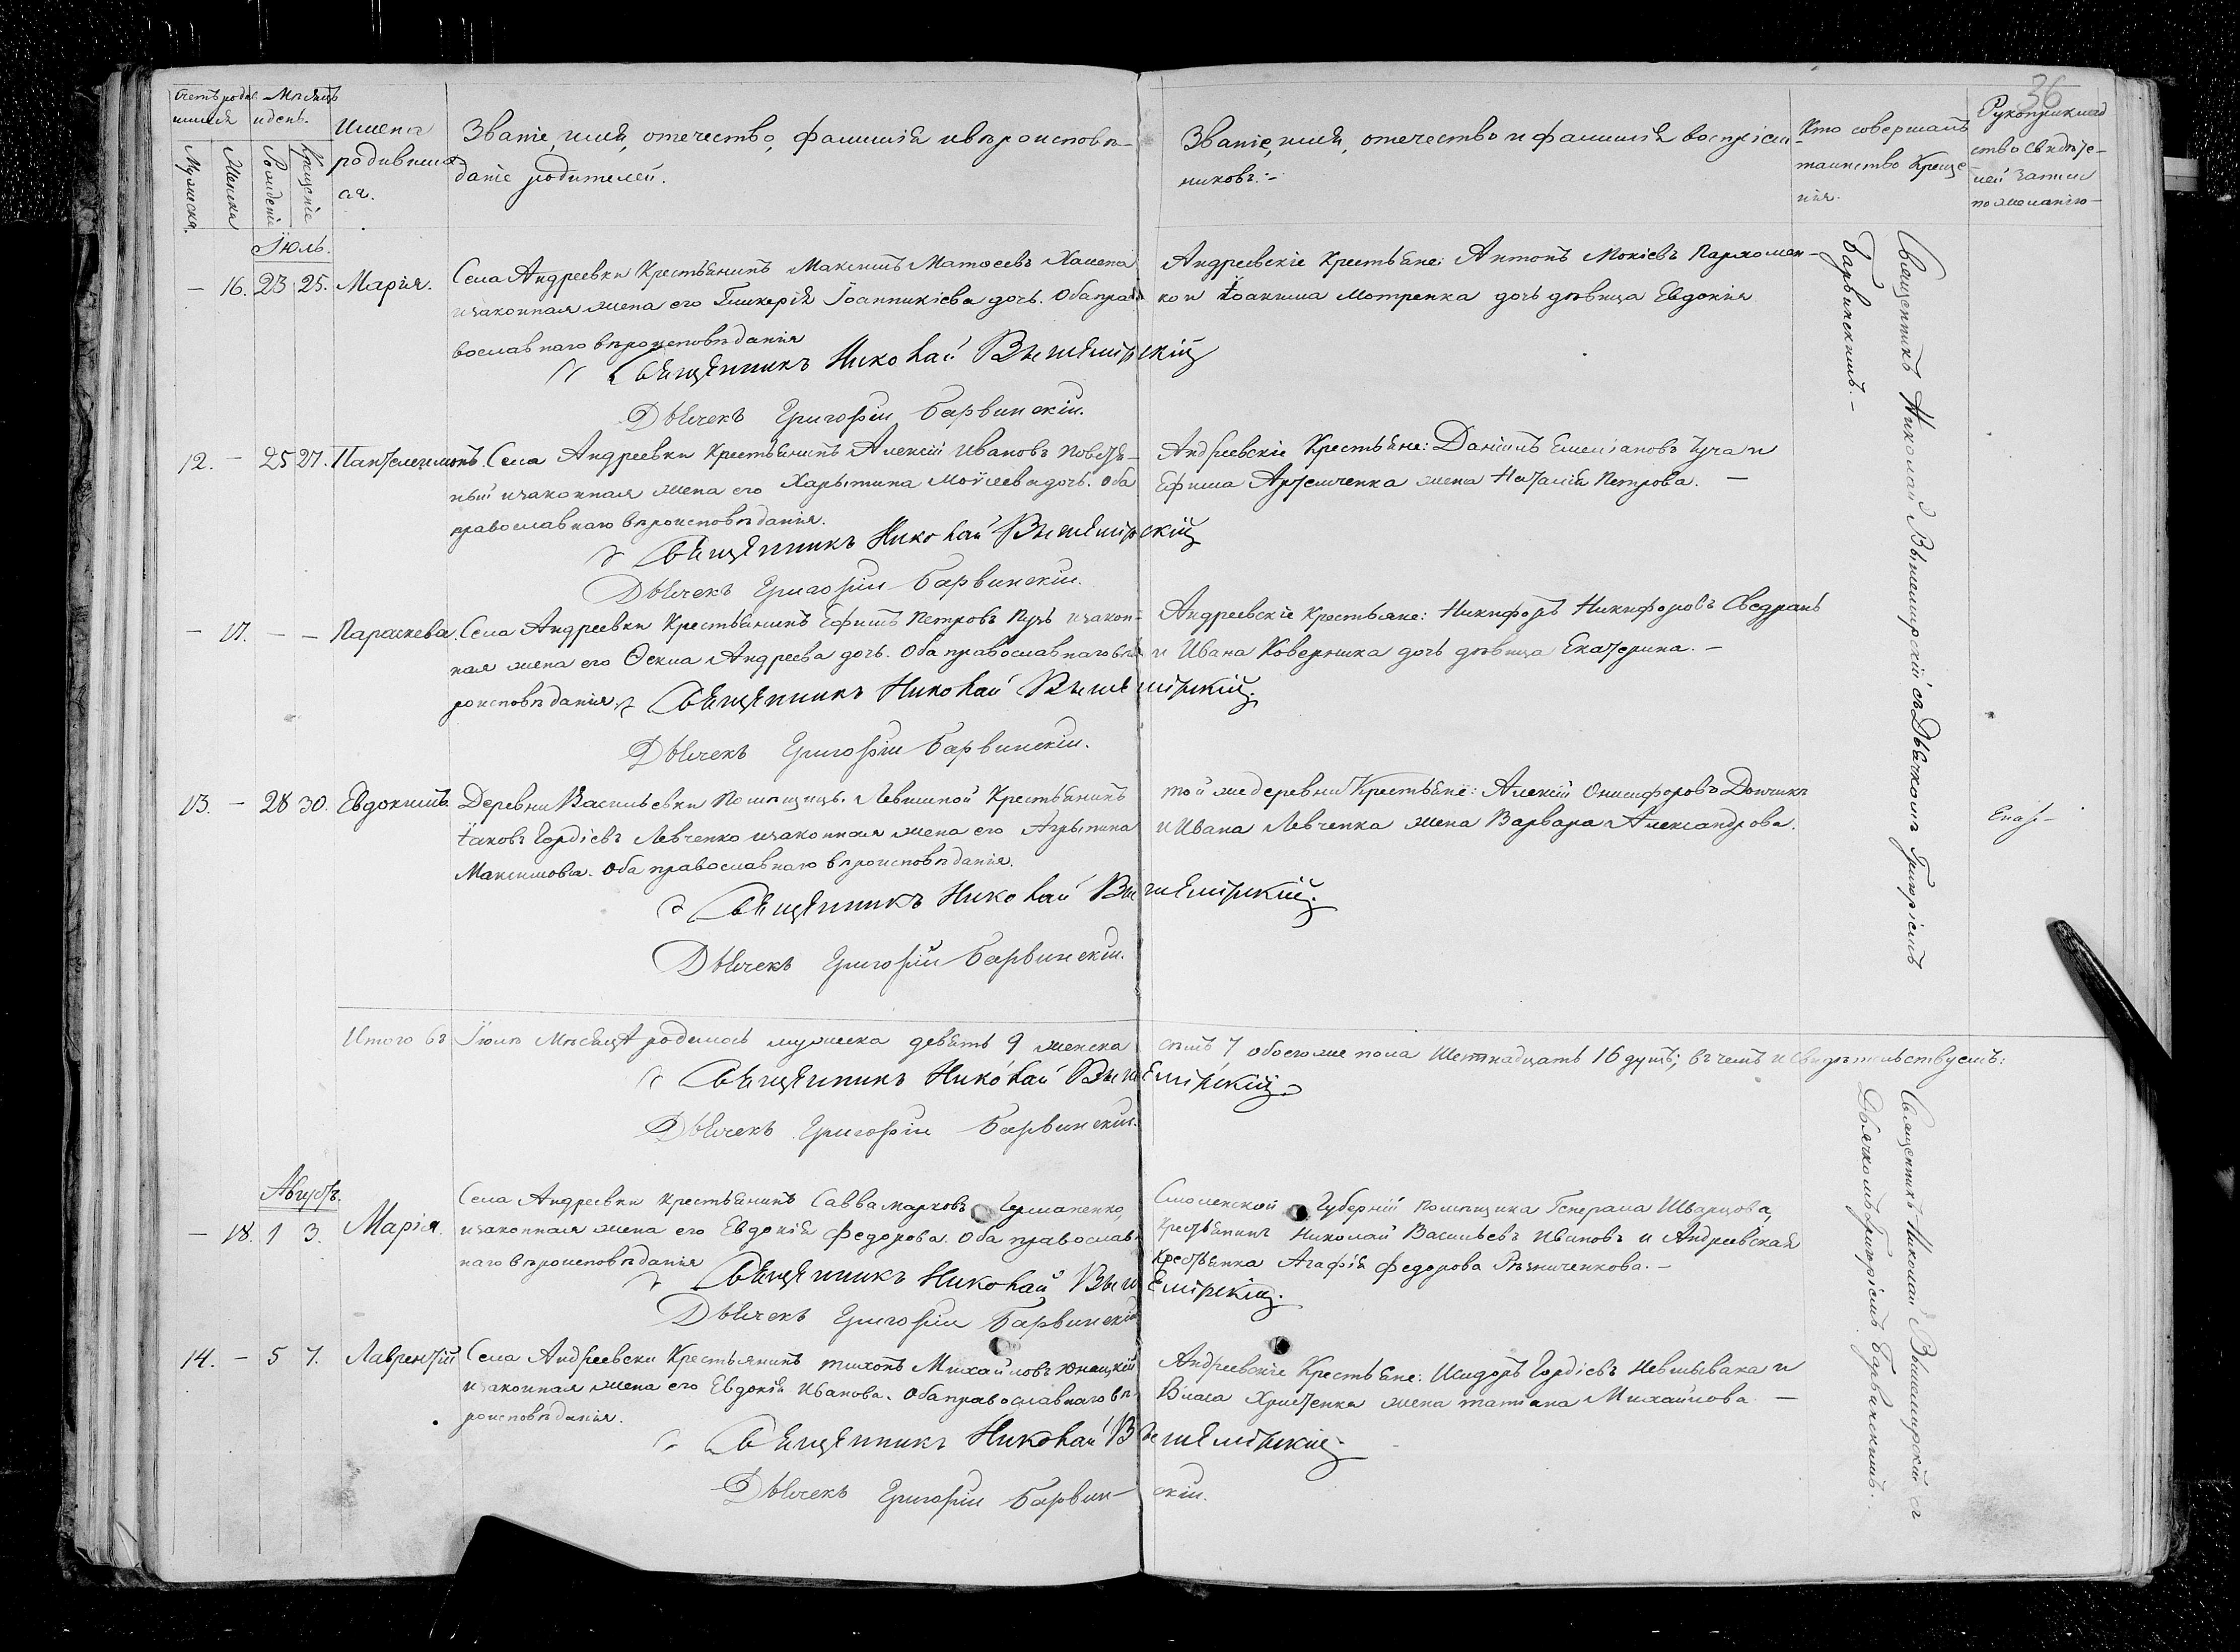 36
Счетъ родив- Мѣсяцъ
шихся и день.
Мужеска.
Женска
Рожденіе
Крещеніе
Имена
родивших
ся.
Званіе, имя, отечество, фамилія и вѣроисповѣ-
даніе родителей.
Званіе, имя, отечество и фамилія воспріем-
никовъ:-
Кто совершалъ
таинство Креще
нія.
Рукоприклад
ство свидѣте-
лей записи
по желанію-
Іюль.
- 16. 23 25. Марія. Села Андреевки Крестьянинъ Максимъ Матфеевъ
и законная жена его Гликерія Іоанникіева дочь. Оба пра
вославнаго вѣроисповѣданія
Священникъ Николай Вышемірскій
Дьячекъ Григорій Барвинскій.
Андреевскіе Крестьяне: Антонъ Мокіевъ Пархомен-
ко и Іоакима Мотренка дочь дѣвица Евдокія
12. - 25 27. Пантелеимонъ. Села Андреевки Крестьянинъ Алексій Ивановъ
и законная жена его Харытина Моѵсеева дочь. Оба
православнаго вѣроисповѣданія.
Священникъ Николай Вышемірскій
Дьячекъ Григорій Барвинскій.
Андреевскіе Крестьяне: Даніилъ Емеліановъ Туча и
Ефима Артемченка жена Наталія Петрова. -
- 17. - - Параскева. Села Андреевки Крестьянинъ Ефимъ Петровъ Пузь и закон-
ная жена его Ѳекла Андреева дочь. Оба православнаго вѣ
роисповѣданія Священникъ Николай Вышемірскій.
Дьячекъ Григорій Барвинскій.
Андреевскіе Крестьяне: Никифоръ Никифоровъ Сведранъ
и Ивана Ковершика дочь дѣвица Екатерина. -
13. - 28 30. Евдокимъ. Деревни Васильевки Помѣщицы Левшиной Крестьянинъ
Іаковъ Гордіевъ Левченко и законная жена его Агрыпина
Максимова. Оба православнаго вѣроисповѣданія.
Священникъ Николай Вышемірскій.
Дьячекъ Григорій Барвинскій.
той же деревни Крестьяне: Алексій Онисифоровъ Дончикъ
и Ивана Левченка жена Варвара Александрова.
Священникъ Николай Вышемирскій съ Дьячкомъ Григоріемъ
Барвинскимъ.-
Итого въ Іюлѣ Мѣсяцѣ родилось мужеска девять 9 женска
семь 7 обоего же пола Шетнадцать 16 душъ; въ чемъ и Свидѣтельствуемъ:
Священникъ Николай Вышемірскій.
Дьячекъ Григорій Барвинскій.
Августъ.
- 18. 1 3. Марія. Села Андреевки Крестьянинъ Савва Марковъ Германенко,
и законная жена его Евдокія Федорова. Оба православ
наго вѣроисповѣданія
Священникъ Николай Вышемірскій.
Дьячекъ Григорій Барвинскій
Смоленской Губерніи помѣщика Генерала Шварцова,
Крестьянинъ Николай Васильевъ Ивановъ и Андреевская
Крестьянка Агафія Федорова Рѣзниченкова. -
14. - 5 7. Лаврентій Села Андреевки Крестьянинъ Тихонъ Михайловъ Юнацкій
и законная жена его Евдокія Иванова. Оба православнаго вѣ
роисповѣданія.
Священникъ Николай Вышемірскій.
Дьячекъ Григорій Барвинскій.
Андреевскіе Крестьяне: Исидоръ Гордіевъ Невмывака и
Власа Христенка жена Татіана Михайлова -
Священникъ Николай Вышемирскій съ
Дьячкомъ Григоріемъ Барвинскимъ.